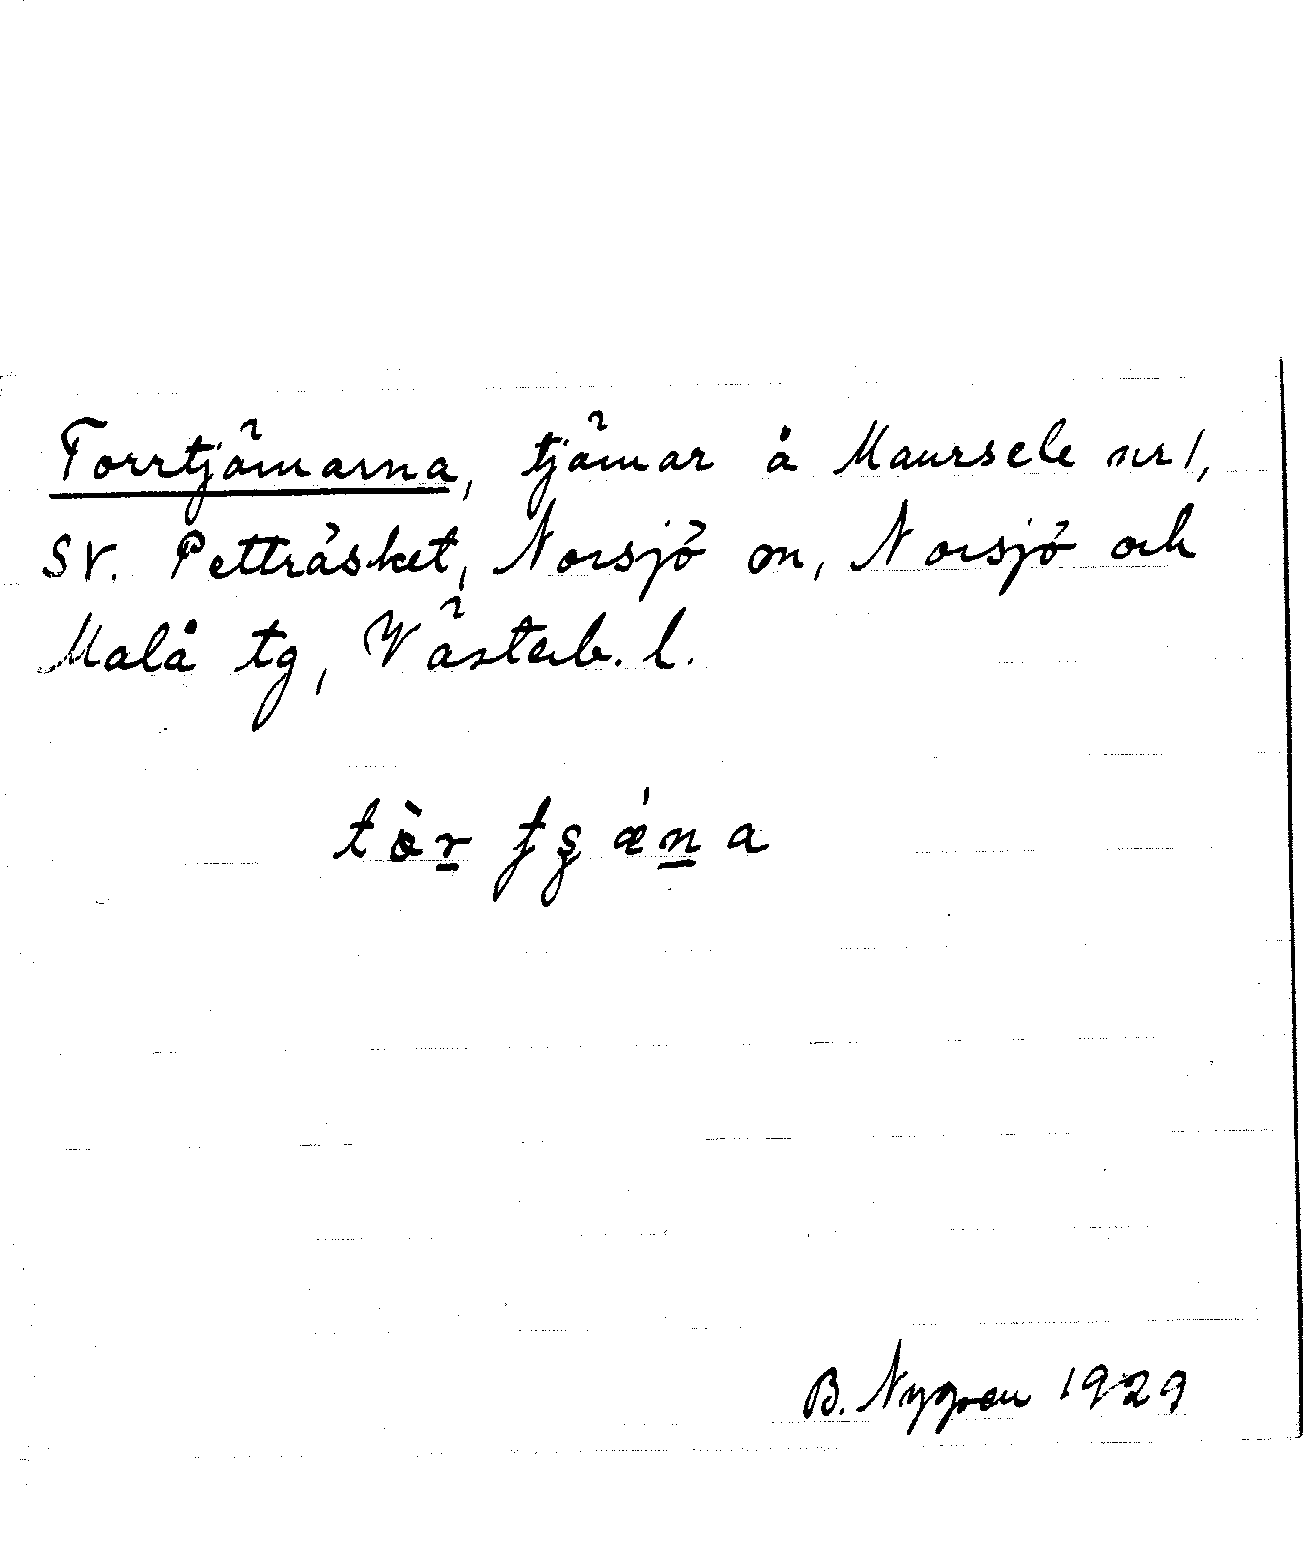 Torrtjärnarna, tjärnar å Maursele nr 1,
SV. Petträsket, Norsjö sn, Norsjö och
Malå tg, Västerb. l.
tòr̲ t̨ʂǽn̲a
B. Nygren 1929